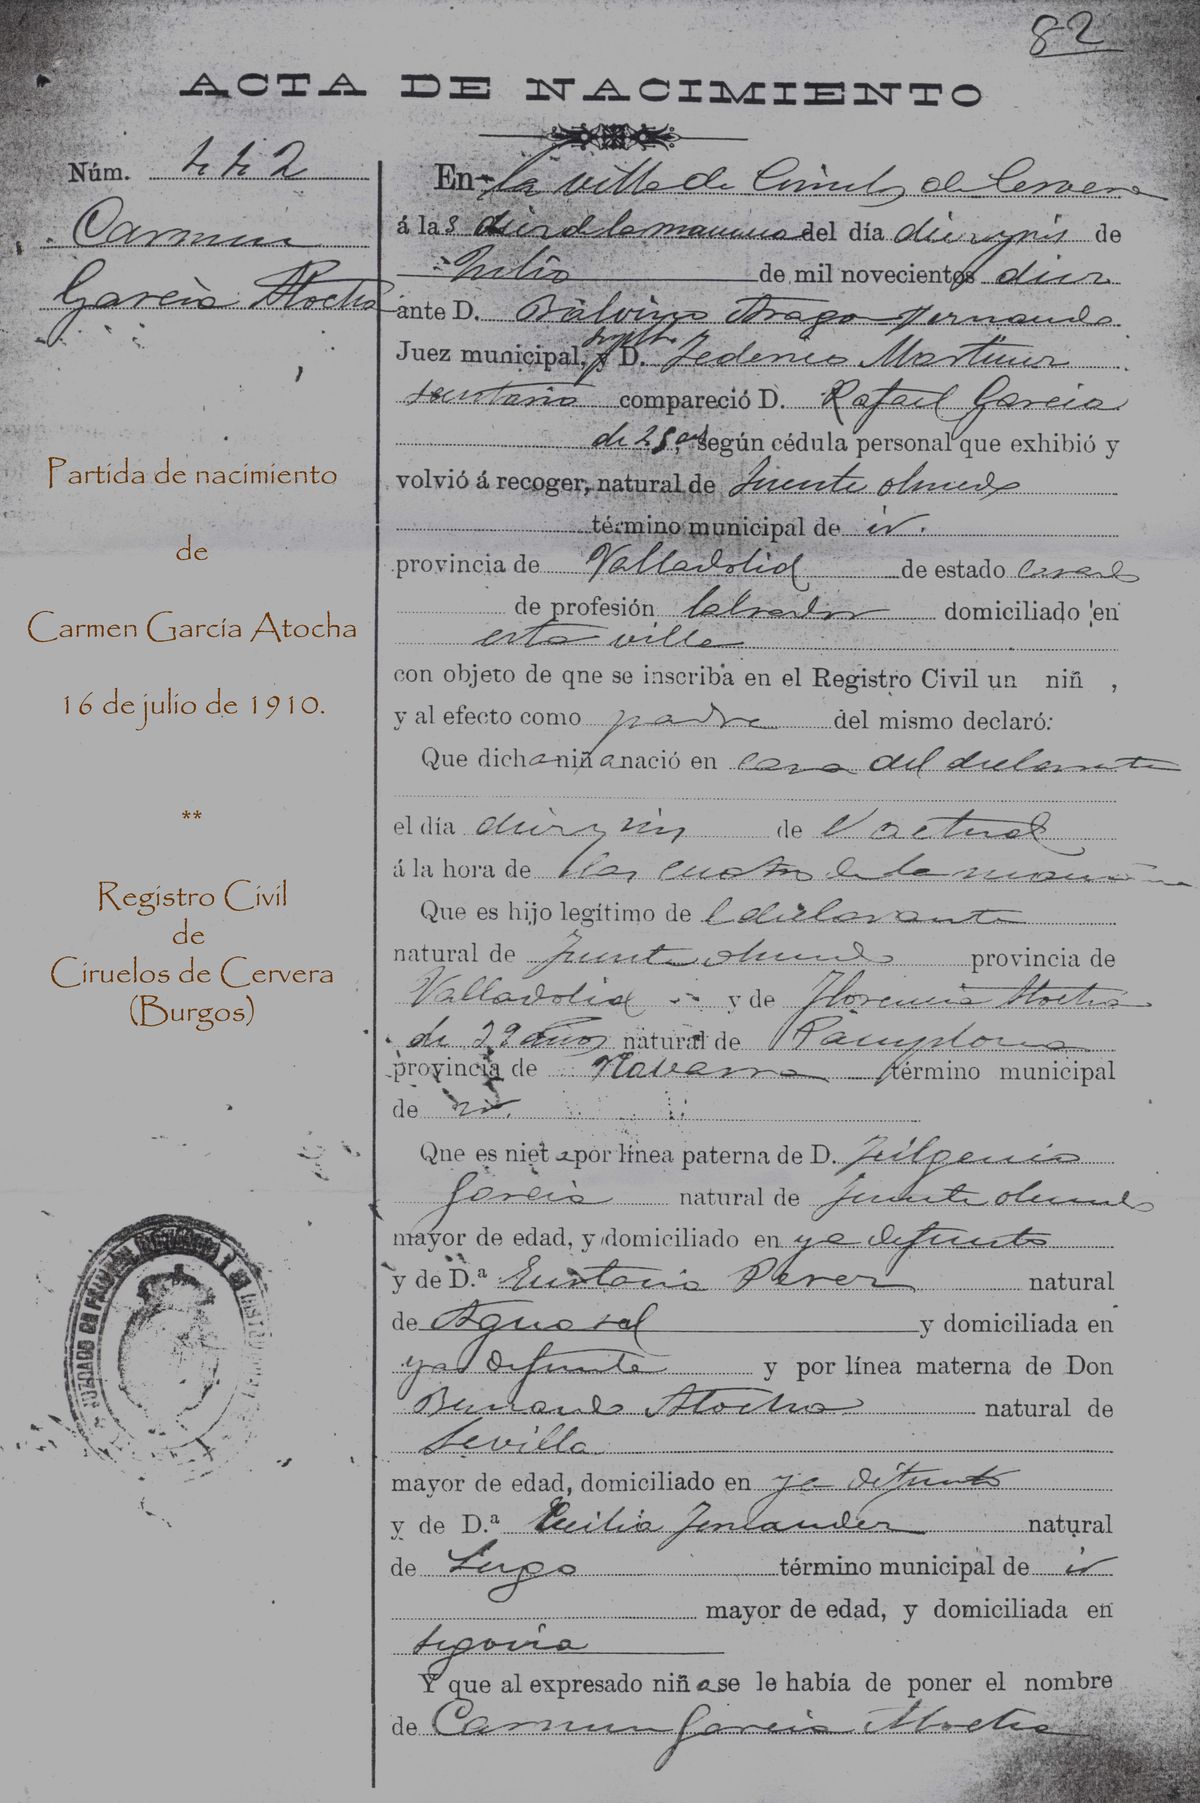 82
ACTA DE NACIMIENTO
Núm. 442
Carmen
García Atocha
Partida de nacimiento
de
Carmen García Atocha
16 de julio de 1910.
**
Registro Civil
de
Ciruelos de Cervera
(Burgos)
En la villa de Ciruelos de Cervera
á las diez de la manana del día diez y seis de
Julio de mil novecientos diez
ante D. Balvino Arago Fernando
Juez municipal, y D. Federico Martinez
secretario compareció D. Rafael Garcia
de 25 años, según cédula personal que exhibió y
volvió á recoger, natural de Fuente olmedo
término municipal de id.
provincia de Valladolid de estado casado
de profesión labrador domiciliado en
esta villa
con objeto de qne se inscriba en el Registro Civil un niñ ,
y al efecto como padre del mismo declaró:
Que dicha niña nació en casa del declarante
el día diez y seis de l actual
á la hora de las cuatro de la manana
Que es hijo legítimo de l declarante
natural de Fuente olmedo provincia de
Valladolid y de Florencia Atocha
de 29 años natural de Pamplona
provincia de Navarra término municipal
de id.
Qne es niet a por línea paterna de D. Fulgencio
Garcia natural de Fuente olmedo
mayor de edad, y domiciliado en ya difunto
y de D.ª Eustacia Perez natural
de Aguasal y domiciliada en
ya difunta y por línea materna de Don
Bernardo Atocha natural de
Sevilla
mayor de edad, domiciliado en ya difunto
y de D.ª Cecilia Fernandez natural
de Lugo término municipal de id
mayor de edad, y domiciliada en
Segovia
Y que al expresado niña se le había de poner el nombre
de Carmen Garcia Atocha
JUZGADO DE PRIMERA INSTANCIA Y DE INSTRUCCION